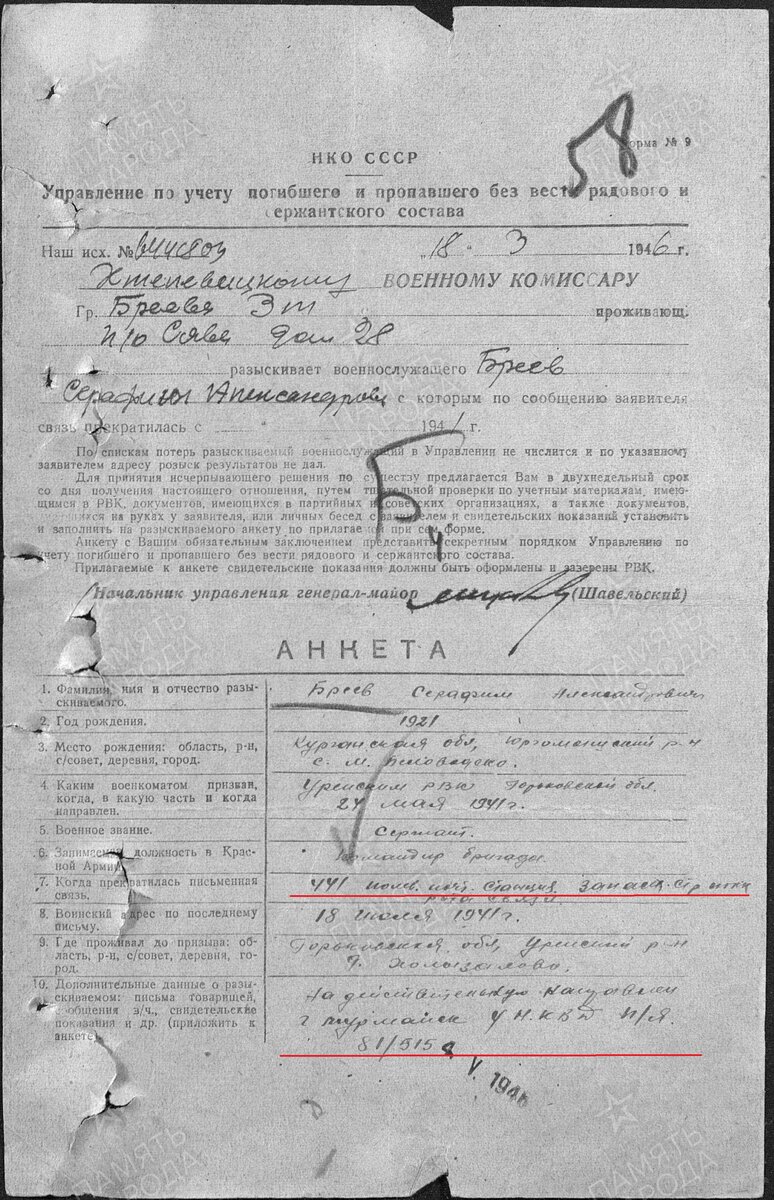 58
Форма № 9
НКО СССР
Управление по учету погибшего и пропавшего без вести рядового и
сержантского состава
Наш исх. № 18 " 3 1946 г.
ВОЕННОМУ КОМИССАРУ
Гр. Бреева З т проживающ.
п/о Сява дом 28
разыскивает военнослужащего Бреев
Серафим Александрович с которым по сообщению заявителя
связь прекратилась с 1941 г.
По спискам потерь разыскиваемый военнослужащий в Управлении не числится и по указанному
заявителем адресу розыск результатов не дал.
Для принятия исчерпывающего решения по существу предлагается Вам в двухнедельный срок
со дня получения настоящего отношения, путем тщательной проверки по учетным материалам, имею-
щимся в РВК, документов, имеющихся в партийных и советских организациях, а также документов,
имеющихся на руках у заявителя, или личных бесед с заявителем и свидетельских показаний установить
и заполнить на разыскиваемого анкету по прилагаемой при сем форме.
Анкету с Вашим обязательным заключением представить секретным порядком Управлению по
учету погибшего и пропавшего без вести рядового и сержантского состава.
Прилагаемые к анкете свидетельские показания должны быть оформлены и заверены РВК.
Б
4
Начальник управления генерал-майор (Шавельский)
АНКЕТА
1. Фамилия, имя и отчество разы-
скиваемого.
Бреев Серафим Александрович
2. Год рождения.
1921
3. Место рождения: область, р-н,
с/совет, деревня, город.
Курганская обл, р-н
с. м.
4. Каким военкоматом призван,
когда, в какую часть и когда
направлен.
Уренским РВК Горьковской обл.
24 мая 1941г.
5. Военное звание.
Сержант.
6. Занимаемая должность в Крас-
ной Армии
командир бригады
7. Когда прекратилась письменная
связь.
441 полев. почт. станция запасн.
рота связи
8. Воинский адрес по последнему
письму.
18 июля 1941г.
9. Где проживал до призыва: об-
ласть, р-н, с/совет, деревня, го-
род.
Горьковская обл, Уренский р-н
10. Дополнительные данные о разы-
скиваемом: письма товарищей,
сообщения в/ч., свидетельские
показания и др. (приложить к
анкете)
На
г мурманск УНКВД п/я.
81/515
V. 1946